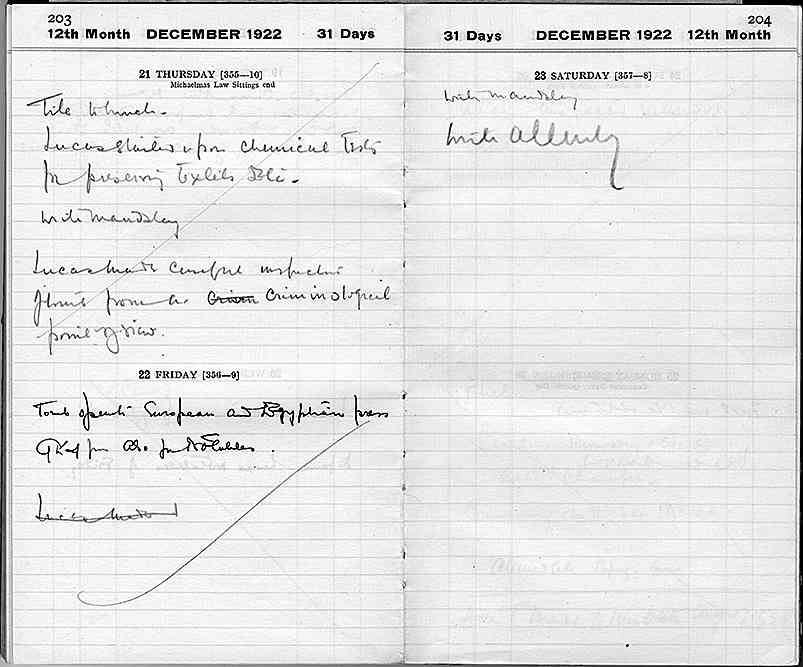 203
12th Month DECEMBER 1922 31 Days
21 THURSDAY [355—10]
Michaelmas Law Sittings end
Tile to lunch.
Lucas started upon chemical Tests
for preserving Textiles &c.
write Maudslay
Lucas made careful inspection
from a Criminological
point of view.
22 FRIDAY [356—9]
Tomb open to European and Egyptian press
Also for Notables.
Lucas made
204
31 Days DECEMBER 1922 12th Month
23 SATURDAY [357—8]
write Maudslay
write Allenby